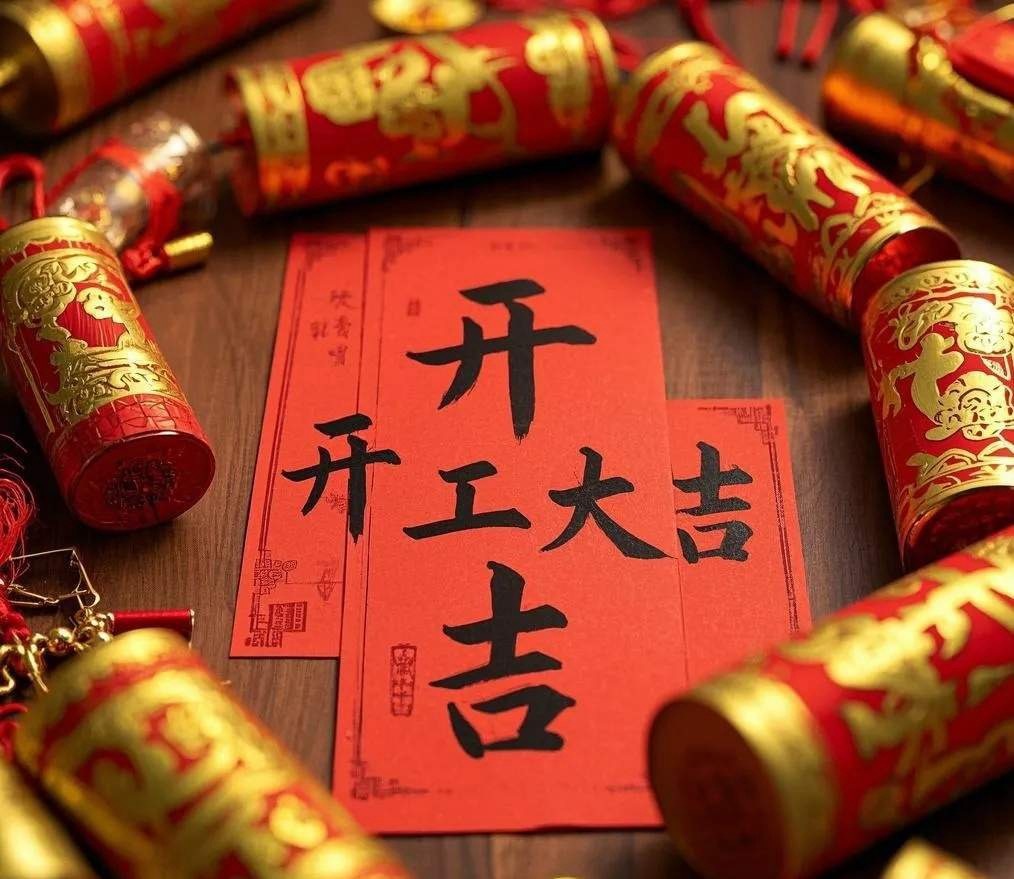 开
开工大吉
吉